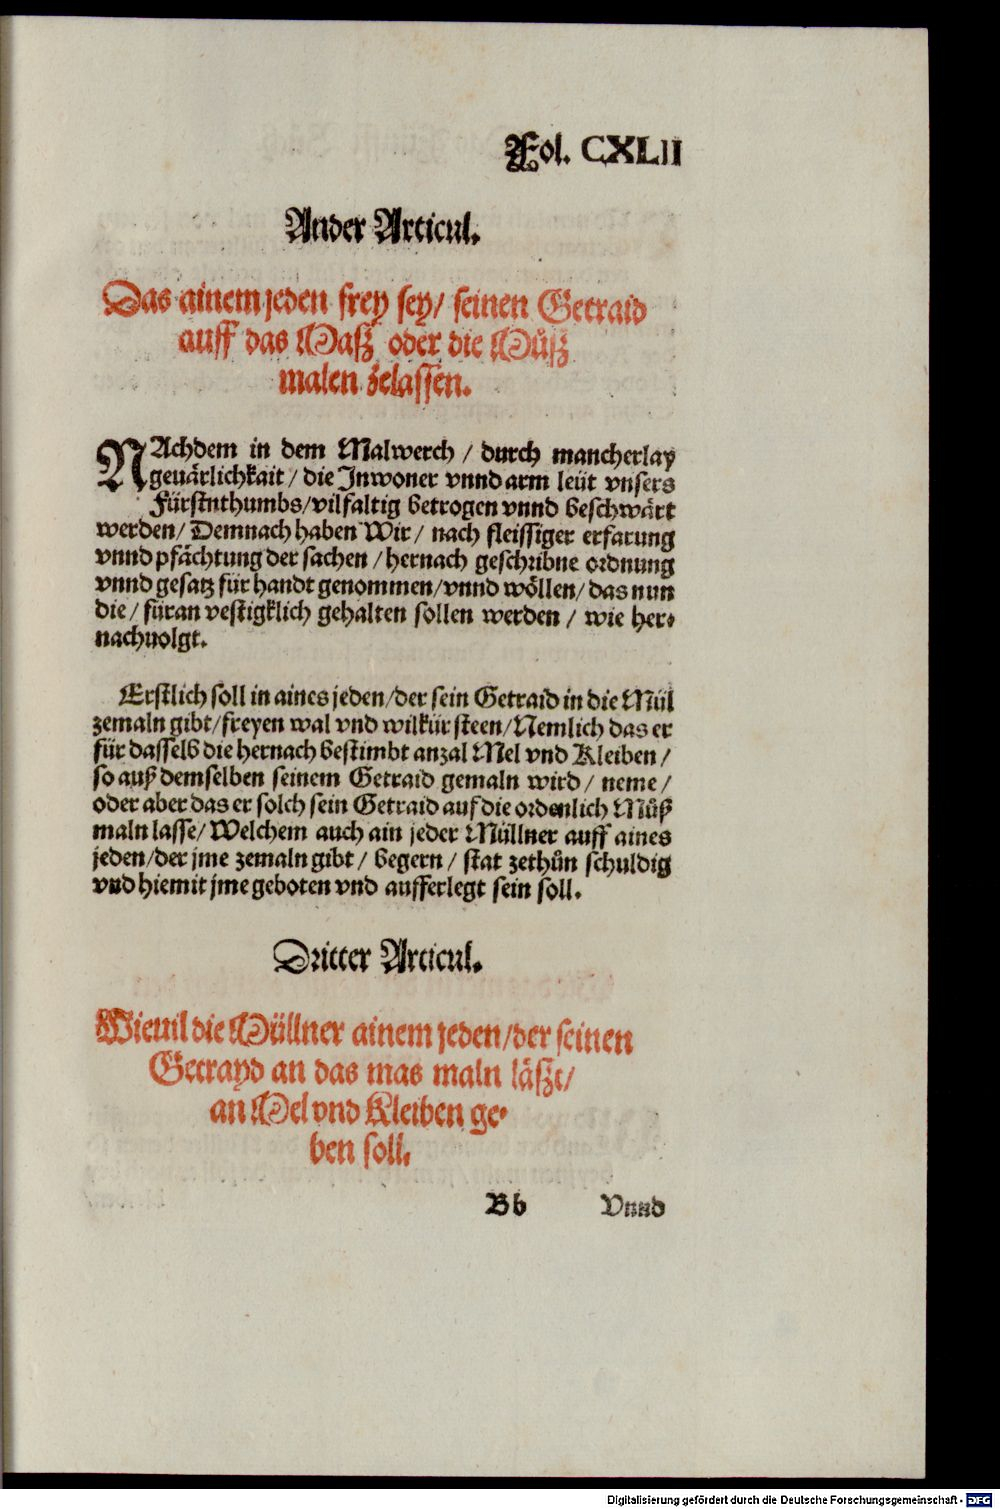 Fol. CXLII
Ander Articul.
Das ainem jeden frey sey/ seinen Getraid
auff das Maß oder die Můß
malen zelassen.
NAchdem in dem Malwerch / durch mancherlay
geuärlichkait / die Inwoner vnnd arm leüt vnsers
Fürstnthumbs/vilfaltig betrogen vnnd beschwärt
werden/ Demnach haben Wir / nach fleissiger erfarung
vnnd pfächtung der sachen / hernach geschribne ordnung
vnnd gesatz für handt genommen/vnnd wöllen/ das nun
die / füran vestigklich gehalten sollen werden / wie her⸗
nachuolgt.
Erstlich soll in aines jeden/der sein Getraid in die Mül
zemaln gibt/freyen wal vnd wilkür steen/Nemlich das er
für dasselb die hernach bestimbt anzal Mel vnd Kleiben /
so auß demselben seinem Getraid gemaln wird / neme /
oder aber das er solch sein Getraid auf die ordenlich Můß
maln lasse/ Welchem auch ain jeder Müllner auff aines
jeden/der jme zemaln gibt / begern / stat zethůn schuldig
vnd hiemit jme geboten vnd aufferlegt sein soll.
Dritter Articul.
Wieuil die Müllner ainem jeden/der seinen
Getrayd an das mas maln läßt/
an Mel vnd Kleiben ge⸗
ben soll.
Bb Vnnd
Digitalisierung gefördert durch die Deutsche Forschungsgemeinschaft - DFG